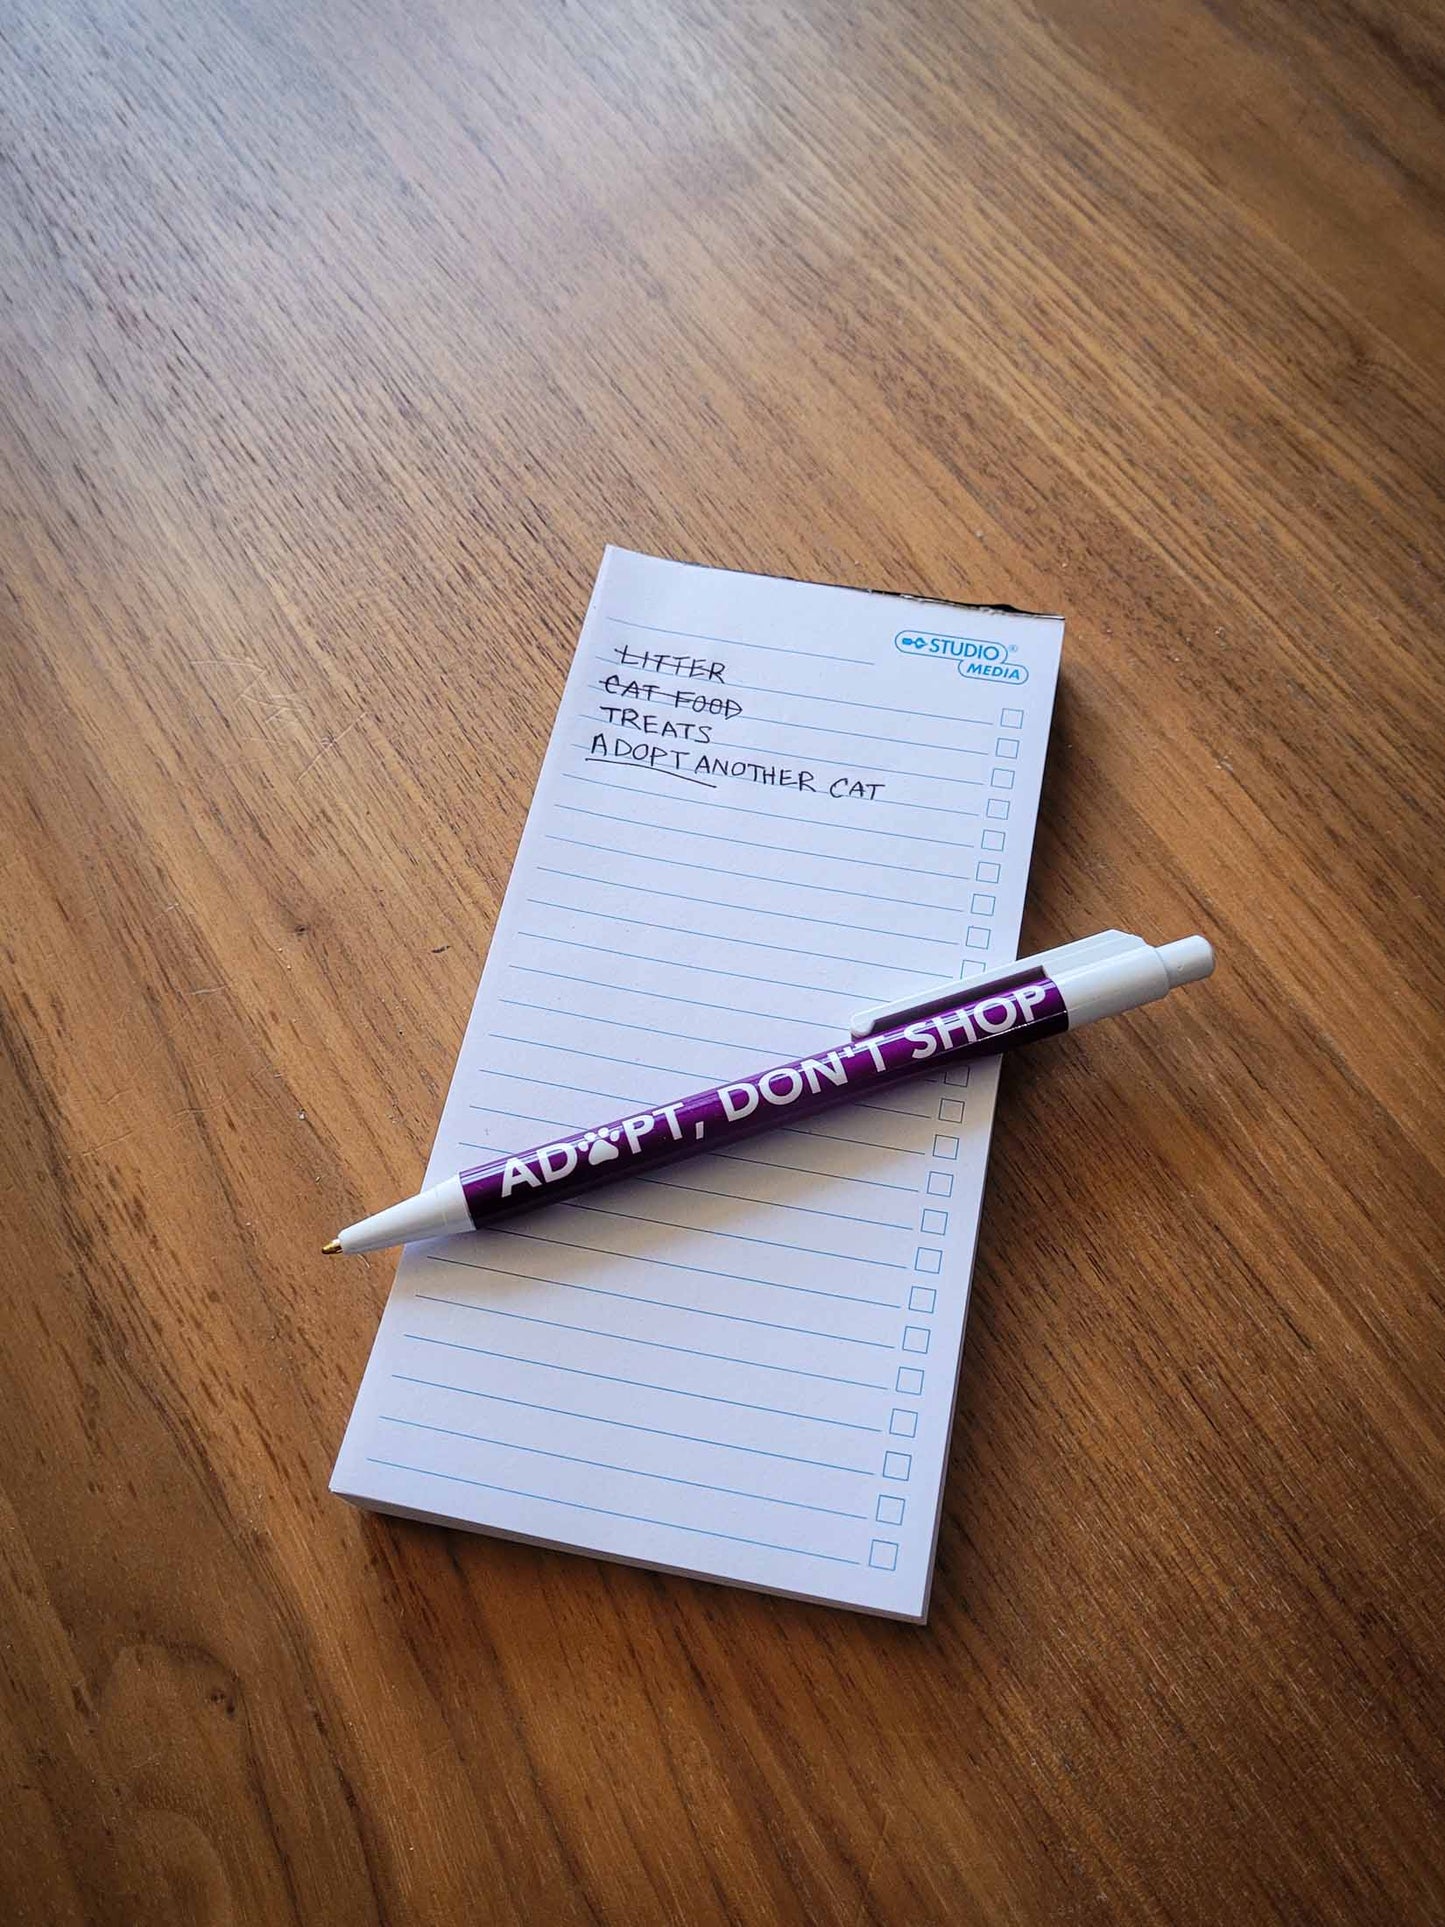 STUDIO®
MEDIA
LITTER
CAT FOOD
TREATS
ADOPT ANOTHER CAT
ADOPT, DON'T SHOP